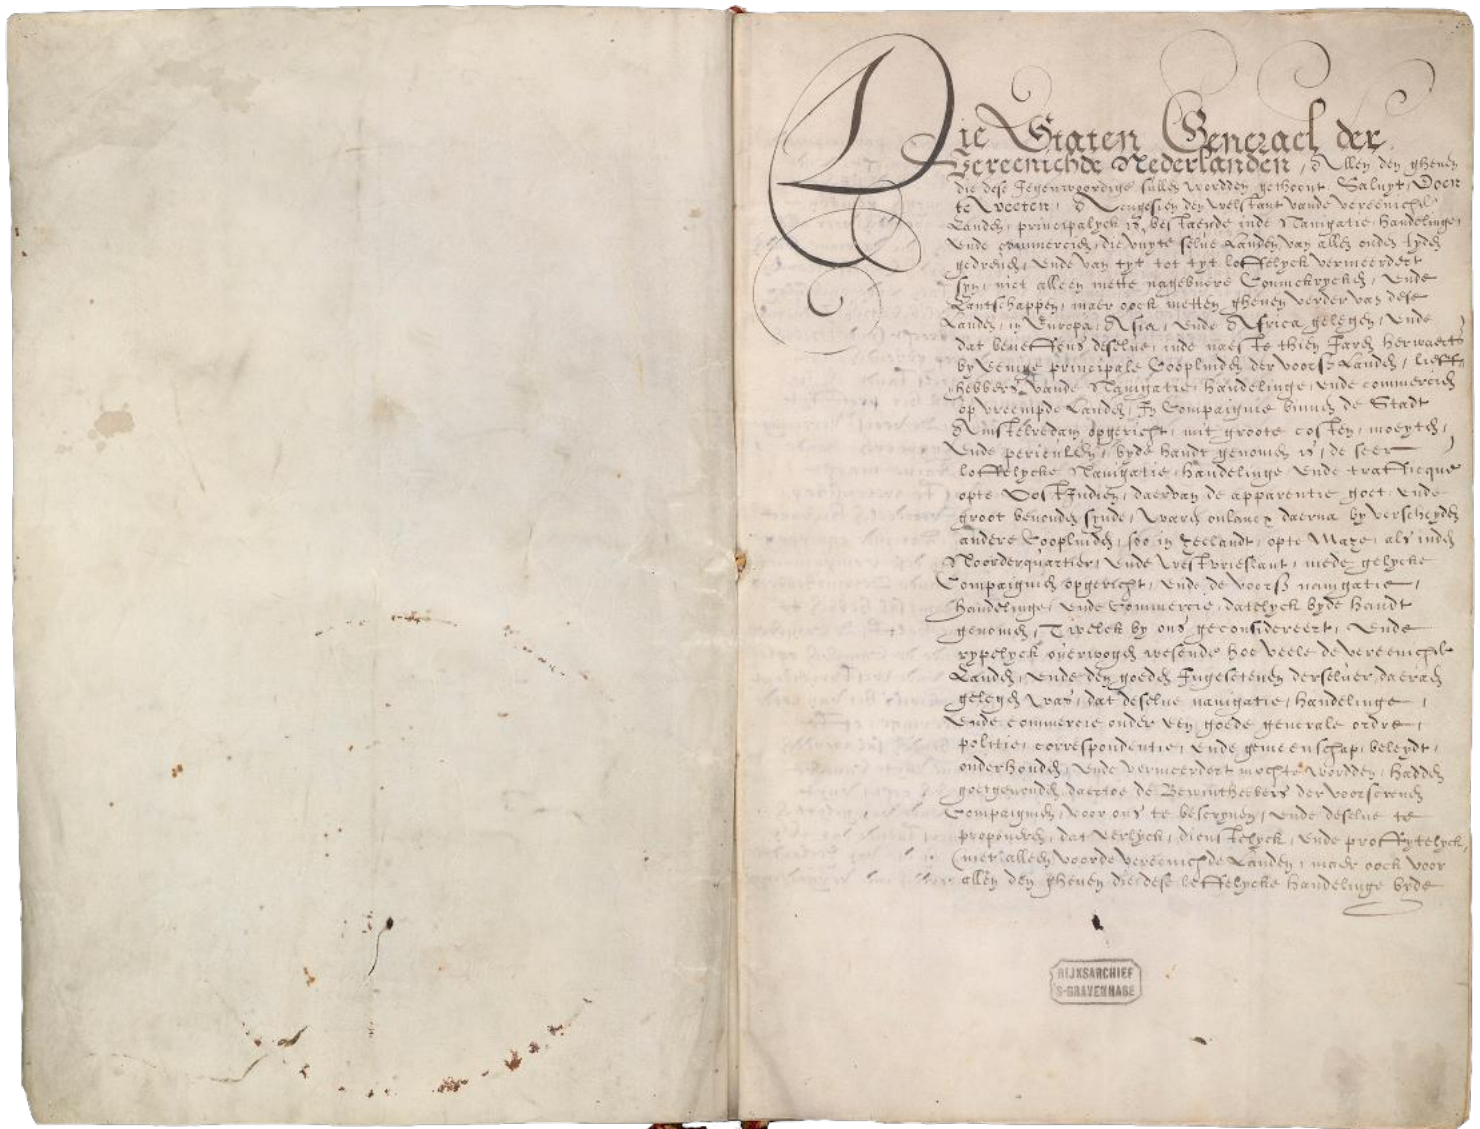 Die Staten Generael der
Vereenichde Nederlanden, Allen den ghenen
die dese Jegenwoordige sullen wordden gethoont, Saluyt, Doen
te weeten, Alsoo angesien den welstant vande vereenichde
Landen, principalyck is bestaende inde Navigatie, handelinge,
ende commercien, die vuyte selve Landen van allen ouden tyden
gedreven, ende van tyt tot tyt loffelyck vermeerdert
syn, niet alleen mette nagebuere Conninckrycken, ende
Lantschappen, maer oock metten ghenen verder van dese
Landen, in Europa, Asia, ende Africa gelegen, ende
dat beneffens deselve, inde naeste thien Jaren herwaerts
by eenige principale Coopluiden der voors Landen, lieff-
hebbers vande Navigatie, handelinge, ende commercien
op vreempde Landen, In Compaignie binnen de Stadt
Amstelredam opgericht, mit groote costen, moeyten,
ende periculen, byde handt genomen is, de seer
loffelycke Navigatie, handelinge ende trafficque
opte Oost Indien, daervan de apparentie goet ende
groot bevonden synde, waren onlancx daerna by verscheyden
andere Coopluiden, soo in Zeelandt, opte Maze, als inden
Noorderquartier, ende westvrieslant, mede gelycke
Compaignien opgericht, ende de voors navigatie,
handelinge, ende Commercie, datelyck byde handt
genomen, Twelck by ons geconsidereert, ende
rypelyck overwogen wesende hoe veele de vereenichde
Landen, ende den goeden Ingesetenen derselver, daeraen
gelegen was, dat deselve navigatie, handelinge,
ende commercie onder een goede generale ordre,
politie, correspondentie, ende gemeenschap, beleydt,
onderhouden, ende vermeerdert mochte wordden, hadden
goetgevonden daertoe de Bewinthebbers der voorscreven
Compaignien, voor ons te bescryven, ende deselve te
proponeren, dat eerlyck, dienstelyck, ende proffytelyck,
(niet alleen voorde vereenichde Landen, maer oock voor
allen den ghenen die dese loffelycke handelinge byde
RIJKSARCHIEF
'S-GRAVENHAGE